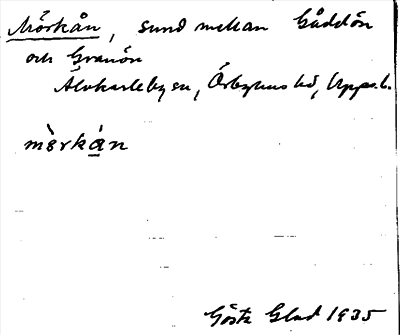 Mörkån, sund mellan Gåddön
och Granön
Älvkarleby sn, Örbyhus hd, Upps. l.
mö̀rkån
Gösta Glad 1935